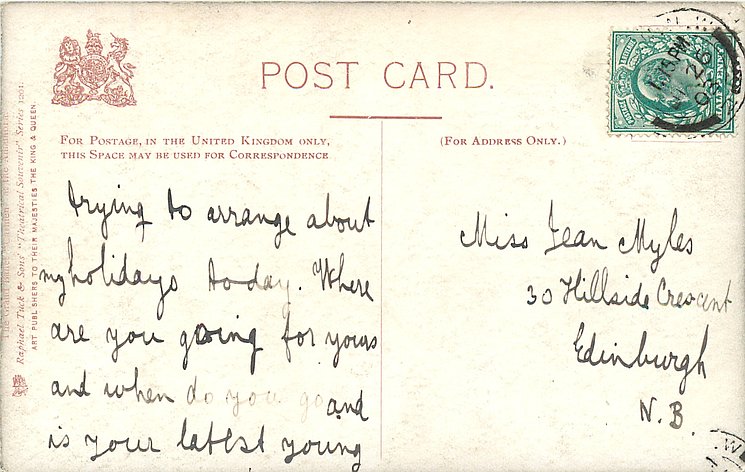 POST CARD.
FOR POSTAGE, IN THE UNITED KINGDOM ONLY,
THIS SPACE MAY BE USED FOR CORRESPONDENCE
(FOR ADDRESS ONLY.)
Raphael Tuck & Sons' "Theatrical Souvenir" Series 1201.
ART PUBLISHERS TO THEIR MAJESTIES THE KING & QUEEN.
trying to arrange about
my holidays today. Where
are you going for yours
and when do you go and
is your latest young
Miss Jean Myles
30 Hillside Crescent
Edinburgh
N.B.